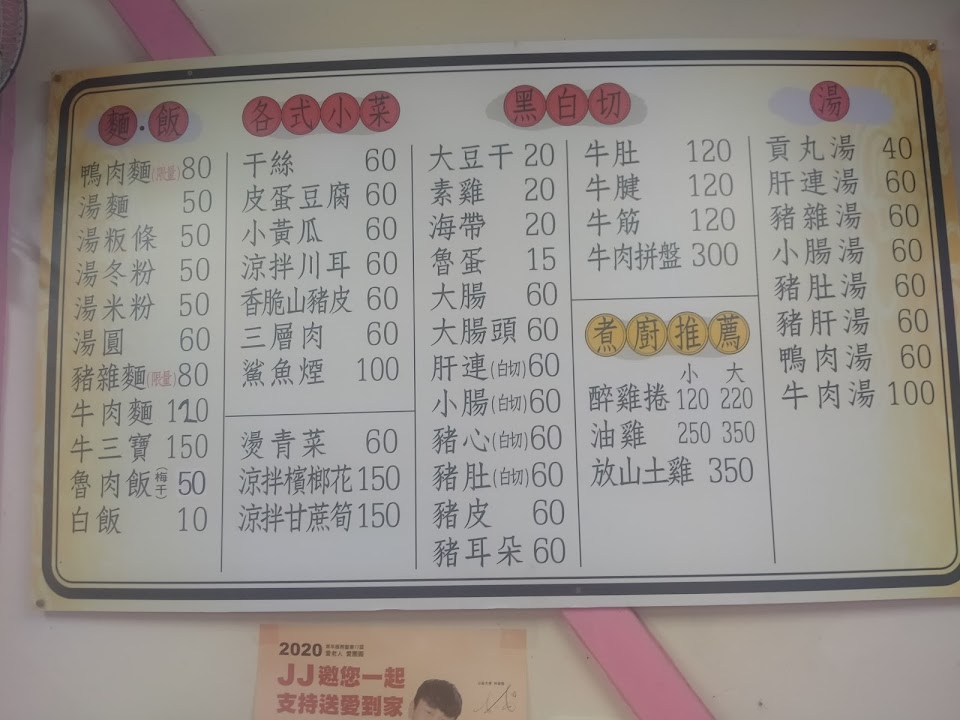 麵·飯
鴨肉麵(限量)80
湯麵 50
湯粄條 50
湯冬粉 50
湯米粉 50
湯圓 60
豬雜麵(限量)80
牛肉麵 120
牛三寶 150
魯肉飯(梅干) 50
白飯 10
各式小菜
干絲 60
皮蛋豆腐 60
小黃瓜 60
涼拌川耳 60
香脆山豬皮 60
三層肉 60
鯊魚煙 100
燙青菜 60
涼拌檳榔花 150
涼拌甘蔗筍 150
黑白切
大豆干 20
素雞 20
海帶 20
魯蛋 15
大腸 60
大腸頭 60
肝連(白切)60
小腸(白切)60
豬心(白切)60
豬肚(白切)60
豬皮 60
豬耳朵 60
牛肚 120
牛腱 120
牛筋 120
牛肉拼盤 300
煮廚推薦
小 大
醉雞捲 120 220
油雞 250 350
放山土雞 350
湯
貢丸湯 40
肝連湯 60
豬雜湯 60
小腸湯 60
豬肚湯 60
豬肝湯 60
鴨肉湯 60
牛肉湯 100
2020
JJ邀您一起
支持送愛到家